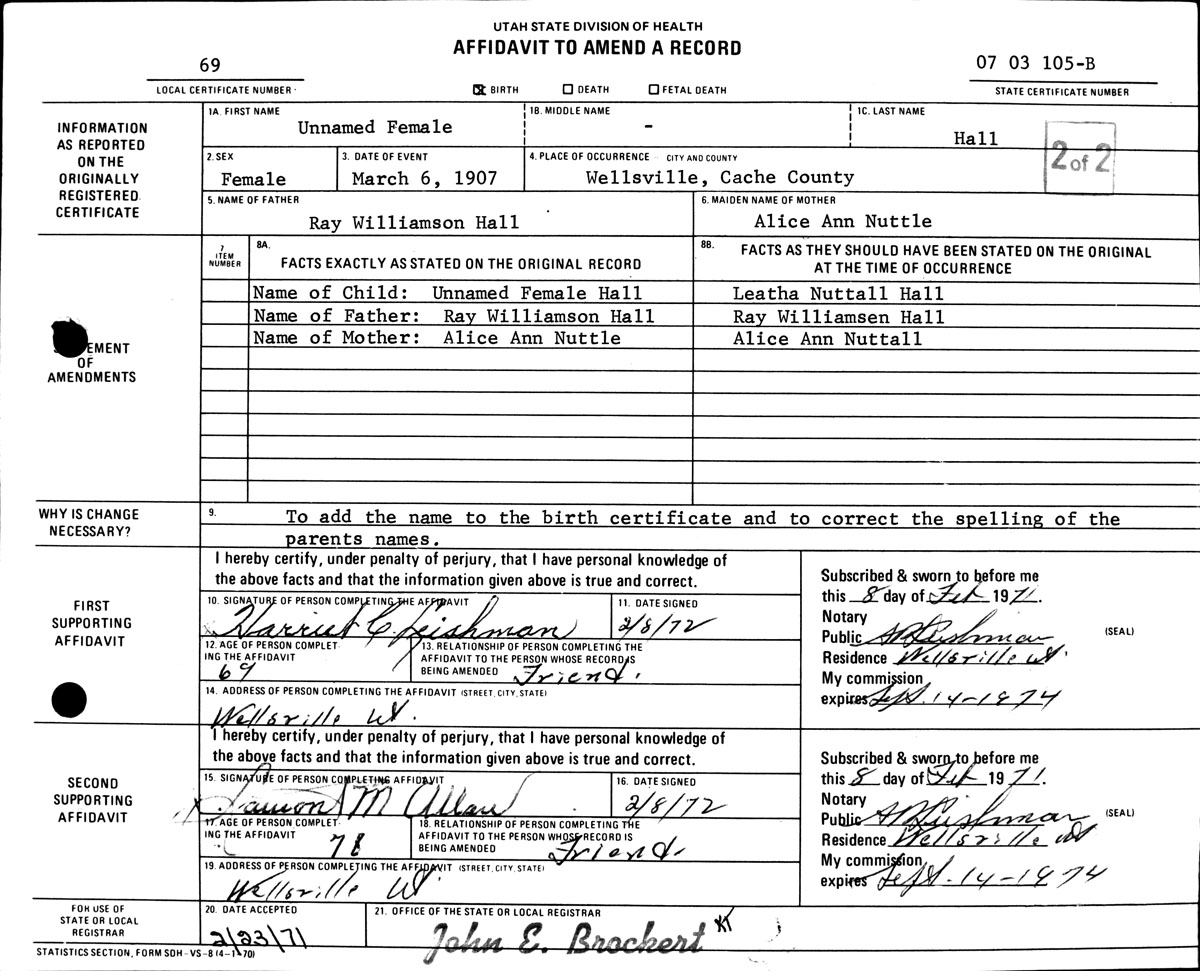 UTAH STATE DIVISION OF HEALTH
AFFIDAVIT TO AMEND A RECORD
69
LOCAL CERTIFICATE NUMBER
☒ BIRTH ☐ DEATH ☐ FETAL DEATH
07 03 105-B
STATE CERTIFICATE NUMBER
INFORMATION
AS REPORTED
ON THE
ORIGINALLY
REGISTERED
CERTIFICATE
1A. FIRST NAME
Unnamed Female
1B. MIDDLE NAME
-
1C. LAST NAME
Hall
2 of 2
2. SEX
Female
3. DATE OF EVENT
March 6, 1907
4. PLACE OF OCCURRENCE - CITY AND COUNTY
Wellsville, Cache County
5. NAME OF FATHER
Ray Williamson Hall
6. MAIDEN NAME OF MOTHER
Alice Ann Nuttle
EMENT
OF
AMENDMENTS
7
ITEM
NUMBER
8A.
FACTS EXACTLY AS STATED ON THE ORIGINAL RECORD
8B.
FACTS AS THEY SHOULD HAVE BEEN STATED ON THE ORIGINAL
AT THE TIME OF OCCURRENCE
Name of Child: Unnamed Female Hall
Leatha Nuttall Hall
Name of Father: Ray Williamson Hall
Ray Williamsen Hall
Name of Mother: Alice Ann Nuttle
Alice Ann Nuttall
WHY IS CHANGE
NECESSARY?
9.
To add the name to the birth certificate and to correct the spelling of the
parents names.
FIRST
SUPPORTING
AFFIDAVIT
I hereby certify, under penalty of perjury, that I have personal knowledge of
the above facts and that the information given above is true and correct.
10. SIGNATURE OF PERSON COMPLETING THE AFFIDAVIT
Harriet C. Leishman
11. DATE SIGNED
2/8/72
12. AGE OF PERSON COMPLET-
ING THE AFFIDAVIT
69
13. RELATIONSHIP OF PERSON COMPLETING THE
AFFIDAVIT TO THE PERSON WHOSE RECORD IS
BEING AMENDED
Friend.
14. ADDRESS OF PERSON COMPLETING THE AFFIDAVIT (STREET, CITY, STATE)
Wellsville Ut.
Subscribed & sworn to before me
this 8 day of Feb 1971.
Notary
Public Leishman
(SEAL)
Residence Wellsville Ut.
My commission
expires Sept. 14-1974
SECOND
SUPPORTING
AFFIDAVIT
I hereby certify, under penalty of perjury, that I have personal knowledge of
the above facts and that the information given above is true and correct.
15. SIGNATURE OF PERSON COMPLETING AFFIDAVIT
Lamon M Allan
16. DATE SIGNED
2/8/72
17. AGE OF PERSON COMPLET-
ING THE AFFIDAVIT
78
18. RELATIONSHIP OF PERSON COMPLETING THE
AFFIDAVIT TO THE PERSON WHOSE RECORD IS
BEING AMENDED
Friend.
19. ADDRESS OF PERSON COMPLETING THE AFFIDAVIT (STREET, CITY, STATE)
Wellsville Ut.
Subscribed & sworn to before me
this 8 day of Feb 1971.
Notary
Public Leishman
(SEAL)
Residence Wellsville Ut
My commission
expires Sept. 14-1974
FOR USE OF
STATE OR LOCAL
REGISTRAR
20. DATE ACCEPTED
2/23/71
21. OFFICE OF THE STATE OR LOCAL REGISTRAR
John E. Brockert KT
STATISTICS SECTION, FORM SDH-VS-8 (4-1-70)